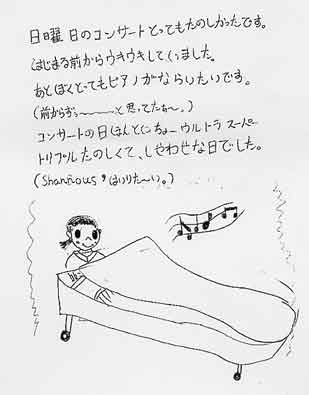 日曜日のコンサートとってもたのしかったです。
はじまる前からウキウキしていました。
あとぼくとってもピアノがならいたいです。
(前からずっ〜〜〜〜と思ってたぁ〜。)
コンサートの日ほんとにちょーウルトラスーパー
トリプルたのしくて、しやわせな日でした。
はいりた〜い。)